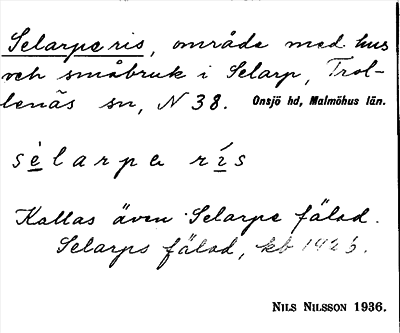 Selarpe ris, område med hus
och småbruk i Selarp, Trol-
lenäs sn, N 38. Onsjö hd, Malmöhus län.
sèlarpa rís
Kallas även Selarpe fälad.
Selarps fälad, kb
NILS NILSSON 1936.